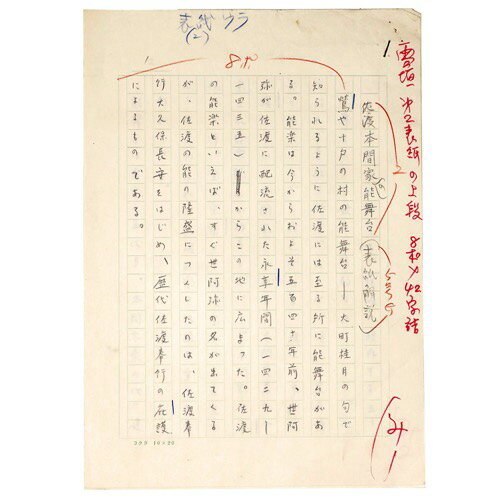 表紙ウラ
(2)
8ポ
雪垣一 第2表紙の上段 8ポ 42字詰
佐渡本間家の能舞台(表紙解説)
鶯や十戸の村の能舞台――大町桂月の句で
知られるように佐渡には至る所に能舞台があ
る。能楽は今からおよそ五百四十年前、世阿
弥が佐渡に配流された永享年間(一四二九―
一四三五)からこの地に広まった。佐渡
の能楽といえば、すぐ世阿弥の名が出てくる
が、佐渡の能の隆盛につくしたのは、佐渡奉
行大久保長安をはじめ、歴代佐渡奉行の庇護
によるものである。
303 10×20